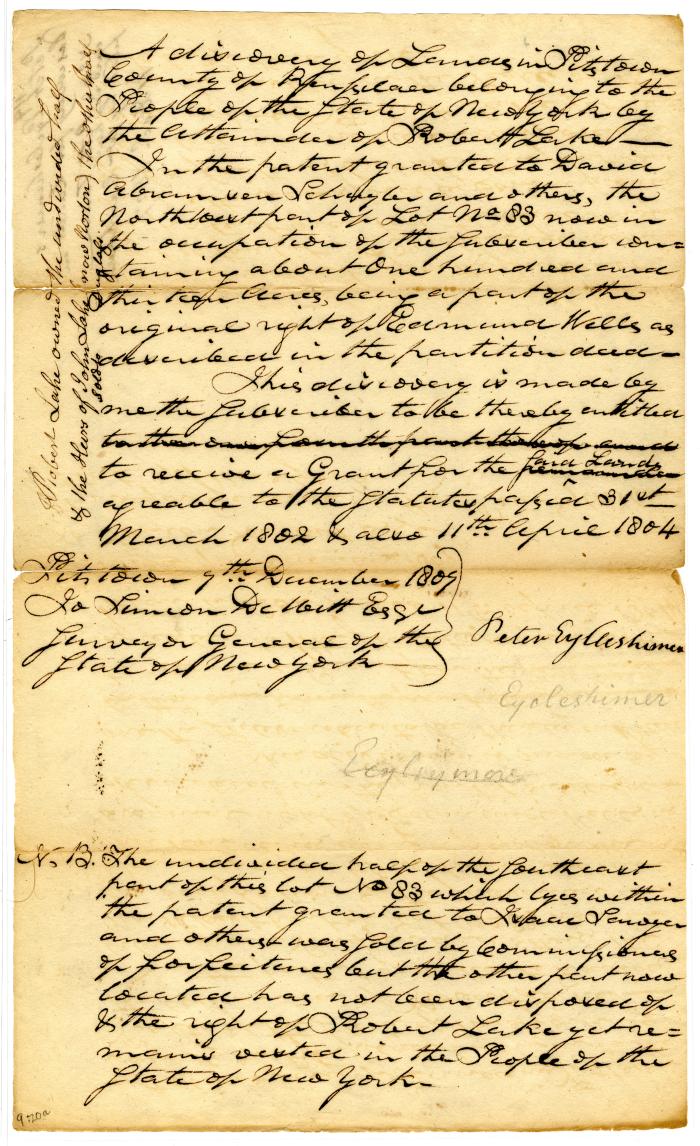 A discovery of Lands in Pitstown
County of Renselaer belonging to the
People of the State of New York by
the Attainder of Robert Lake —
In the patent granted to David
Abramsen Schuyler and others, the
Northwest part of Lot No 83 now in
the occupation of the Subscriber con=
taining about One hundred and
thirteen Acres, being a part of the
original right of Edmund Wells as
described in the partition deed —
This discovery is made by
me the Subscriber to be thereby entitled
to the one fourth part thereof and
said Lands
to receive a Grant for the remainder
agreable to the Statutes passed 31st
March 1802 & also 11th April 1804
Pitstown 9th December 1809
To Simeon DeWitt Esqr
Surveyor General of the
State of New York —
Peter Eycleshimer
Eycleshimer
N. B. The undivided half of the Southeast
part of this lot No 83 which lyes within
the patent granted to Isaac Sawyer
and others was sold by Commissioners
of forfeitures but the other part now
located has not been disposed of
& the right of Robert Lake yet re=
mains vested in the People of the
State of New York —
Robert Lake owned the undivided half
& the Heirs of John Lake (now Norton) the other half
sold to
9:20a